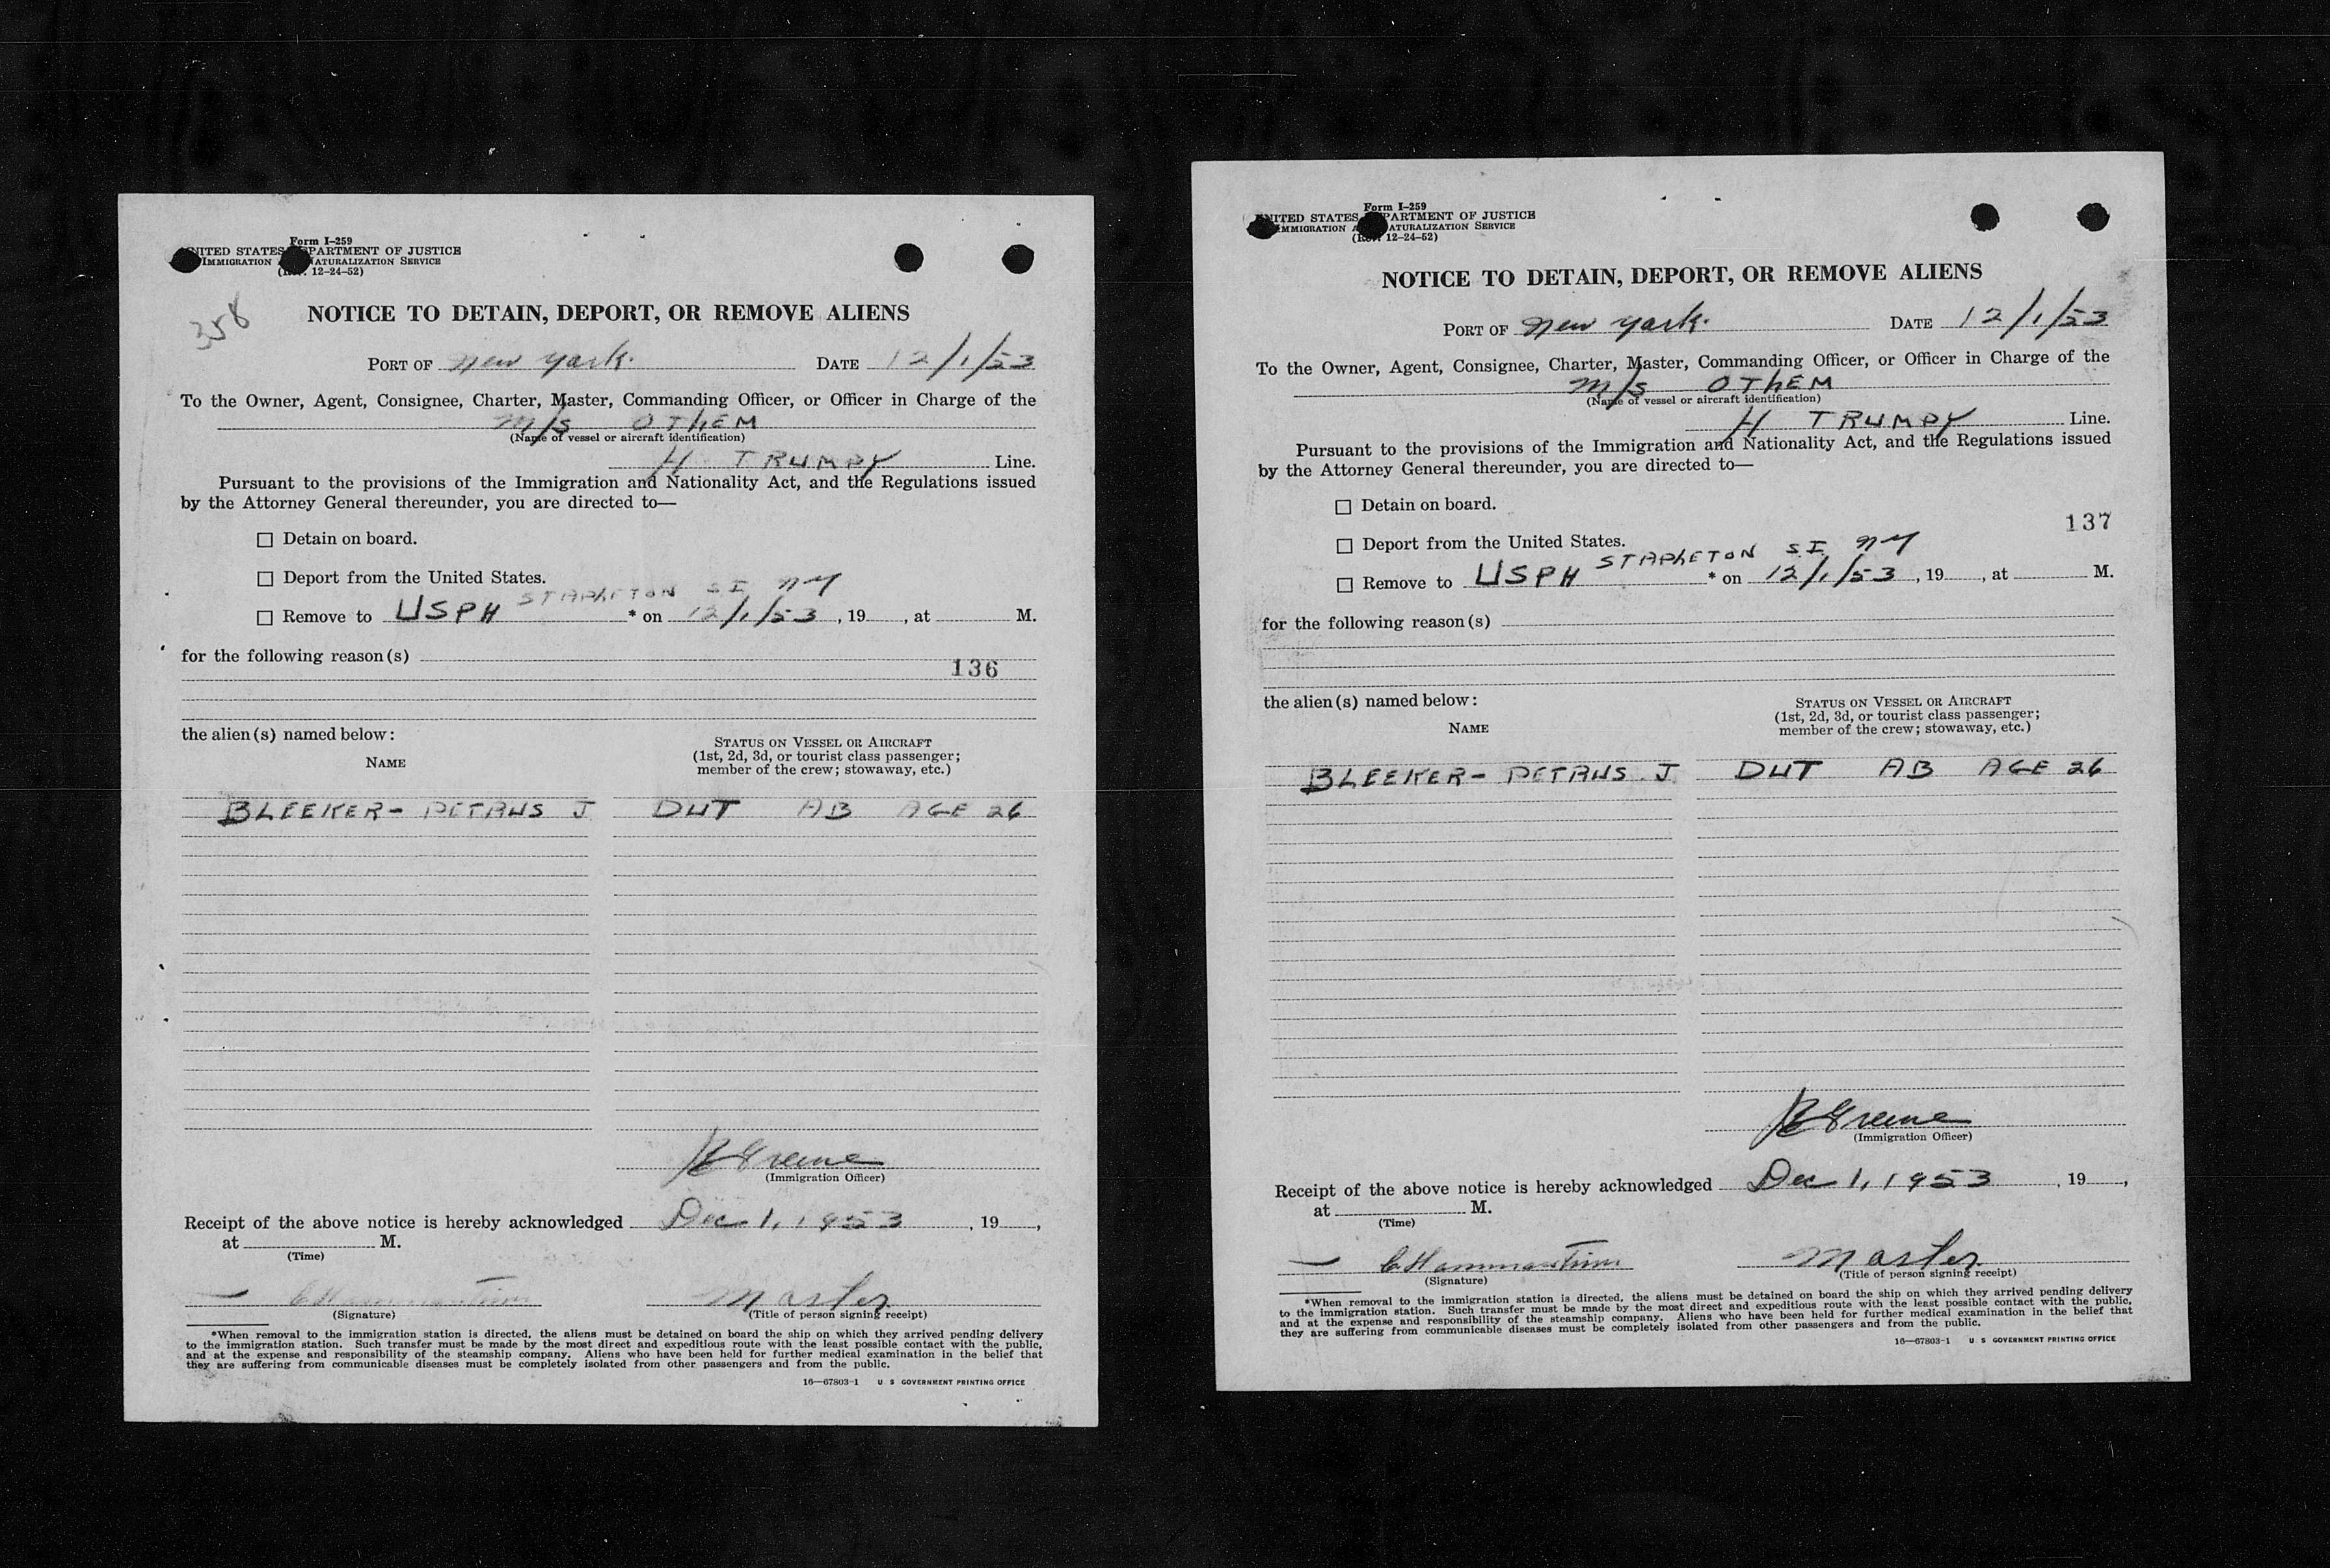 Form I-259
UNITED STATES DEPARTMENT OF JUSTICE
IMMIGRATION AND NATURALIZATION SERVICE
(Rev. 12-24-52)
358
NOTICE TO DETAIN, DEPORT, OR REMOVE ALIENS
PORT OF New York. DATE 12/1/53
To the Owner, Agent, Consignee, Charter, Master, Commanding Officer, or Officer in Charge of the
M/s OTHEM
(Name of vessel or aircraft identification)
H TRUMPY Line.
Pursuant to the provisions of the Immigration and Nationality Act, and the Regulations issued
by the Attorney General thereunder, you are directed to—
☐ Detain on board.
☐ Deport from the United States.
STAPLETON S I NY
☐ Remove to USPH * on 12/1/53, 19, at M.
for the following reason(s)
136
the alien(s) named below:
NAME
STATUS ON VESSEL OR AIRCRAFT
(1st, 2d, 3d, or tourist class passenger;
member of the crew; stowaway, etc.)
BLEEKER- PETRUS J DUT AB AGE 26
Greene
(Immigration Officer)
Receipt of the above notice is hereby acknowledged Dec 1, 1953, 19,
at M.
(Time)
Master
(Signature) (Title of person signing receipt)
*When removal to the immigration station is directed, the aliens must be detained on board the ship on which they arrived pending delivery
to the immigration station. Such transfer must be made by the most direct and expeditious route with the least possible contact with the public,
and at the expense and responsibility of the steamship company. Aliens who have been held for further medical examination in the belief that
they are suffering from communicable diseases must be completely isolated from other passengers and from the public.
16—67803-1 U S GOVERNMENT PRINTING OFFICE
Form I-259
UNITED STATES DEPARTMENT OF JUSTICE
IMMIGRATION AND NATURALIZATION SERVICE
(Rev. 12-24-52)
NOTICE TO DETAIN, DEPORT, OR REMOVE ALIENS
PORT OF New York. DATE 12/1/53
To the Owner, Agent, Consignee, Charter, Master, Commanding Officer, or Officer in Charge of the
M/s OTHEM
(Name of vessel or aircraft identification)
H TRUMPY Line.
Pursuant to the provisions of the Immigration and Nationality Act, and the Regulations issued
by the Attorney General thereunder, you are directed to—
☐ Detain on board.
137
☐ Deport from the United States.
STAPLETON S.I. NY
☐ Remove to USPH * on 12/1/53, 19, at M.
for the following reason(s)
the alien(s) named below:
NAME
STATUS ON VESSEL OR AIRCRAFT
(1st, 2d, 3d, or tourist class passenger;
member of the crew; stowaway, etc.)
BLEEKER- PETRUS J DUT AB AGE 26
Greene
(Immigration Officer)
Receipt of the above notice is hereby acknowledged Dec 1, 1953, 19,
at M.
(Time)
Master
(Signature) (Title of person signing receipt)
*When removal to the immigration station is directed, the aliens must be detained on board the ship on which they arrived pending delivery
to the immigration station. Such transfer must be made by the most direct and expeditious route with the least possible contact with the public,
and at the expense and responsibility of the steamship company. Aliens who have been held for further medical examination in the belief that
they are suffering from communicable diseases must be completely isolated from other passengers and from the public.
16—67803-1 U S GOVERNMENT PRINTING OFFICE